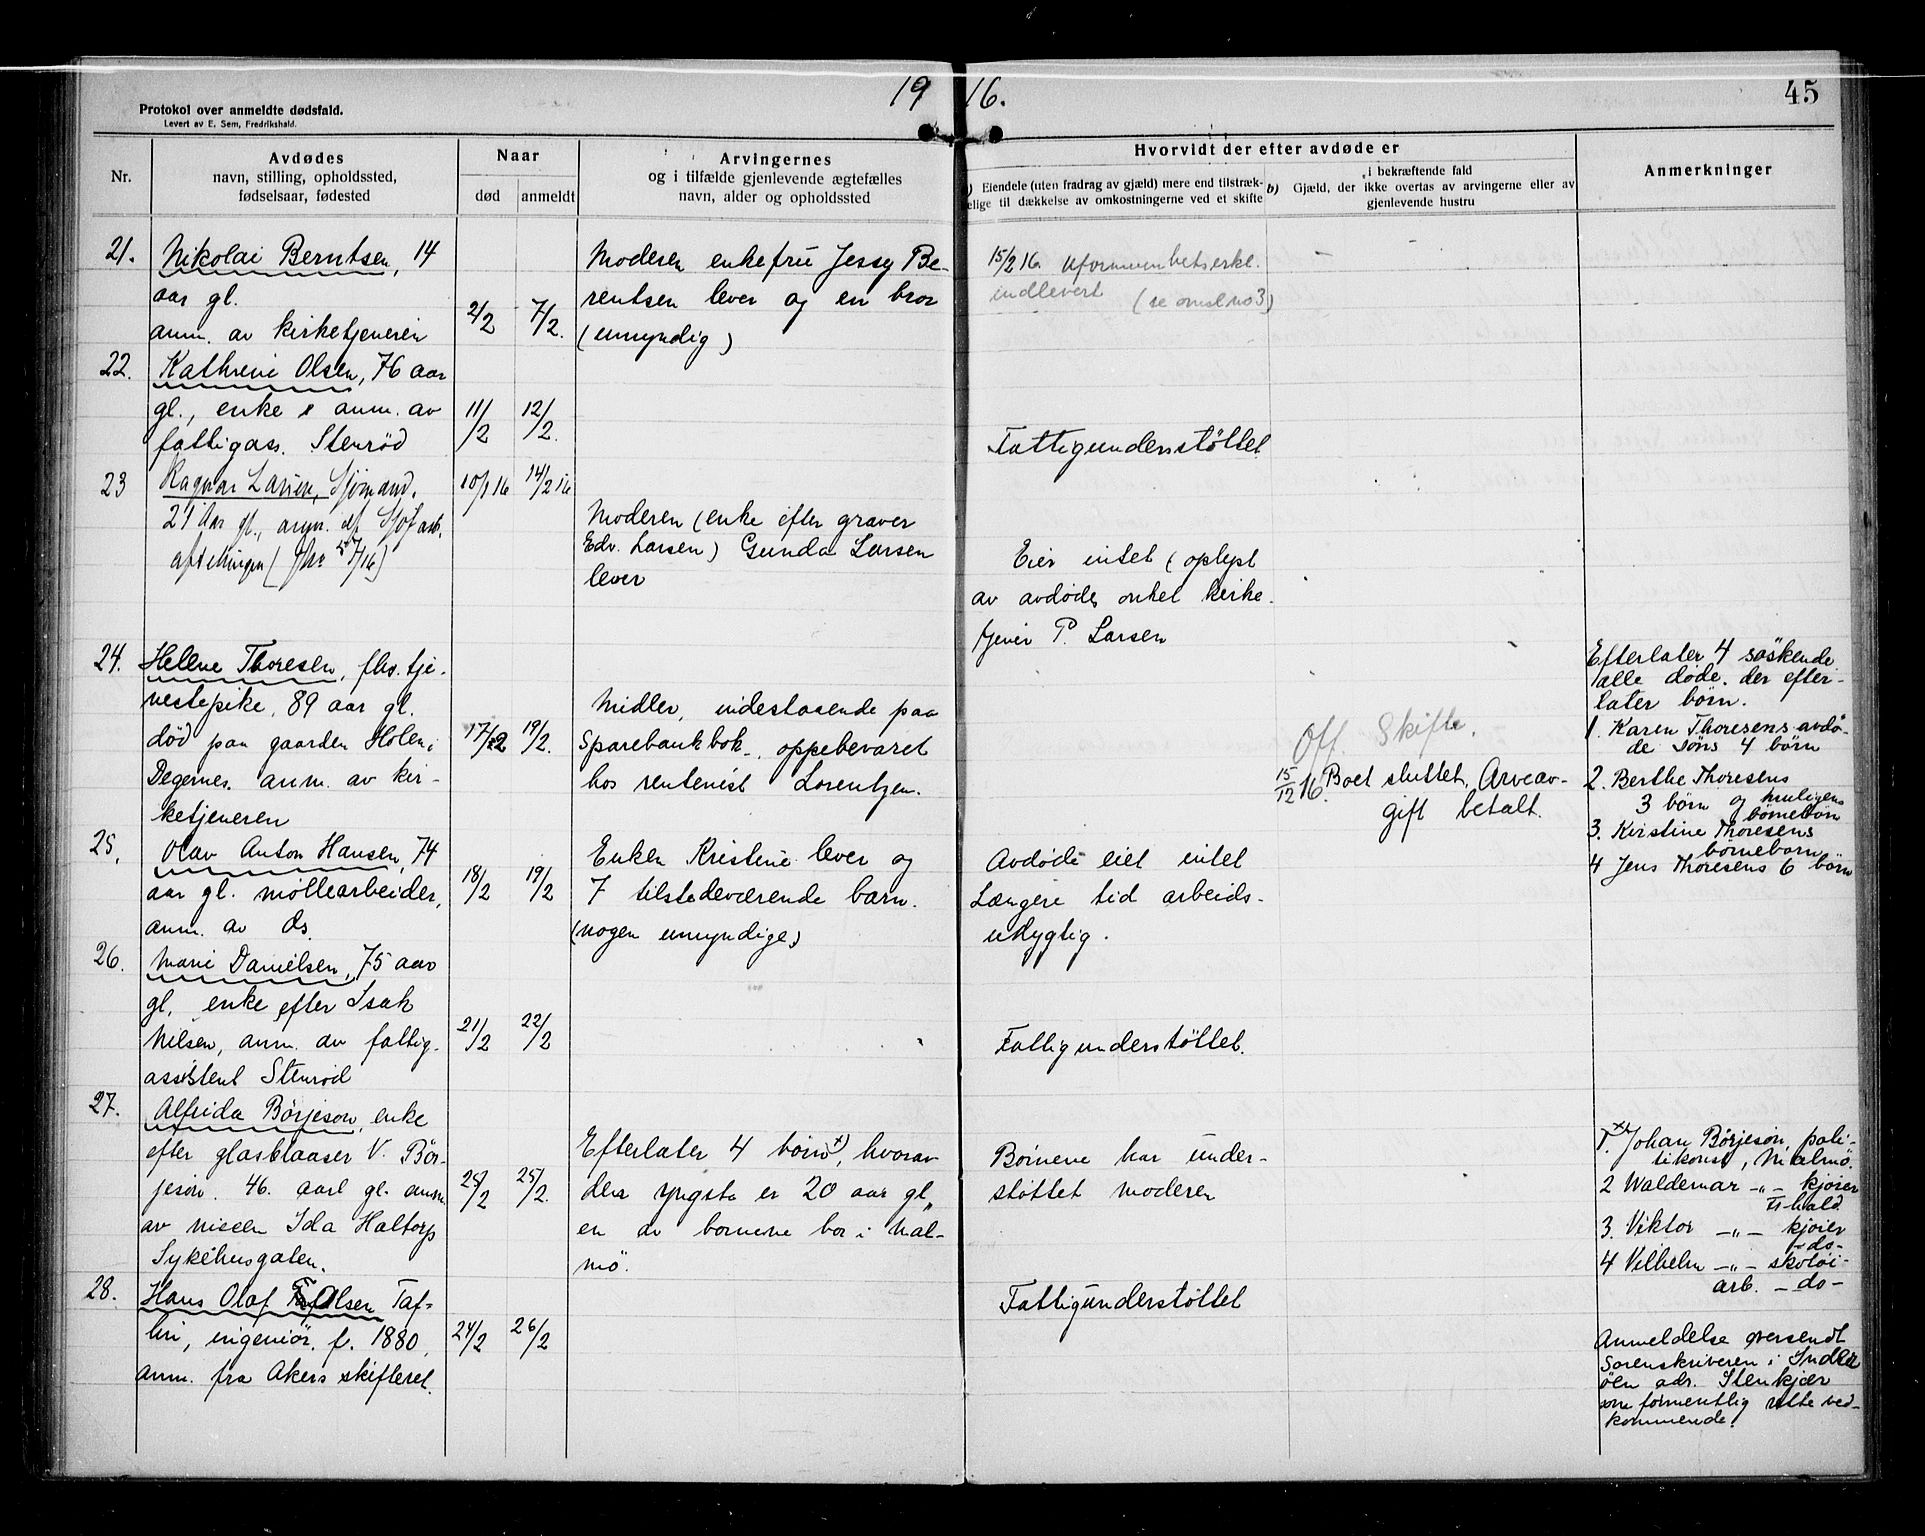 1916.
45
Protokol over anmeldte dødsfald.
Levert av E. Sem, Fredrikshald.
Nr.
Avdødes
navn, stilling, opholdssted,
fødselsaar, fødested
Naar
død
anmeldt
Arvingernes
og i tilfælde gjenlevende ægtefælles
navn, alder og opholdssted
Hvorvidt der efter avdøde er
a) Eiendele (uten fradrag av gjæld) mere end tilstræk-
kelige til dækkelse av omkostningerne ved et skifte
b) i bekræftende fald
Gjæld, der ikke overtas av arvingerne eller av
gjenlevende hustru
Anmerkninger
21.
Nikolai Berntsen, 14
aar gl.
anm. av kirketjeneren
2/2
7/2.
Moderen enkefru Jessy Be-
rentsen lever og en bror
(umyndig)
15/2 16. uformuenhetserkl.
indlevert (se omsl no 3)
22.
Kathrine Olsen, 76 aar
gl., enke anm. av
fattigass. Stenrød
11/2
12/2.
Fattigunderstøttet
23
Ragnar Larsen, Sjømand.
21 Aar gl., anm. af Sjøf
afdelingen
10/1 16
14/2 16
Moderen (enke efter graver
Edv. Larsen) Gunda Larsen
lever
Eier intet (oplyst
av avdødes onkel kirke-
tjener P. Larsen
24.
Helene Thoresen, fhv. tje-
nestepike, 89 aar gl.
død paa gaarden Holen i
Degernes. anm. av kir-
ketjeneren
17/2
19/2.
Midler, indestaaende paa
Sparebankbok, oppebevaret
hos rentenist Lorentzen.
Off. Skifte.
15/12 16. Boet sluttet, Arveav-
gift betalt.
Efterlater 4 søskende
alle døde. der efter-
later børn.
1. Karen Thoresens avdø-
de søns 4 børn
2. Berthe Thoresens
3 børn og muligens
børnebørn
3. Kirstine Thoresens
børnebørn
4 Jens Thoresens 6 børn
25.
Olav Anton Hansen, 74
aar gl. møllearbeider,
anm. av ds.
18/2
19/2
Enken Kristine lever og
7 tilstedeværende barn.
(nogen umyndige)
Avdøde eiet intet
Længere tid arbeids-
udygtig.
26.
Marie Danielsen, 75 aar
gl. enke efter Isak
Nilsen, anm. av fattig-
assistent Stenrød
21/2
22/2
Fattigunderstøttet.
27.
Alfrida Børjeson, enke
efter glasblaaser V. Bör-
jeson. 46. aar gl. anm
av niecen Ida Haltorp
Sykehusgaten.
25/2
25/2.
Efterlater 4 børn x), hvorav
den yngste er 20 aar gl.,
en av børnene bor i Mal-
mö.
Børnene har under-
støttet moderen
x) 1. Johan Børjeson, poli-
tikonst, Malmö.
2 Waldemar -"- kjører
F.hald
3. Viktor -"- kjører
-do-
4 Vilhelm -"- skotøi-
arb. -do-
28.
Hans Olaf Olsen Taf-
lin, ingeniør, f. 1880,
anm. fra Akers skifteret.
24/2
26/2
Fattigunderstøttet
Anmeldelse oversendt
Sorenskriveren i Inder
øen adr. Stenkjær
som formentlig rette ved-
kommende.